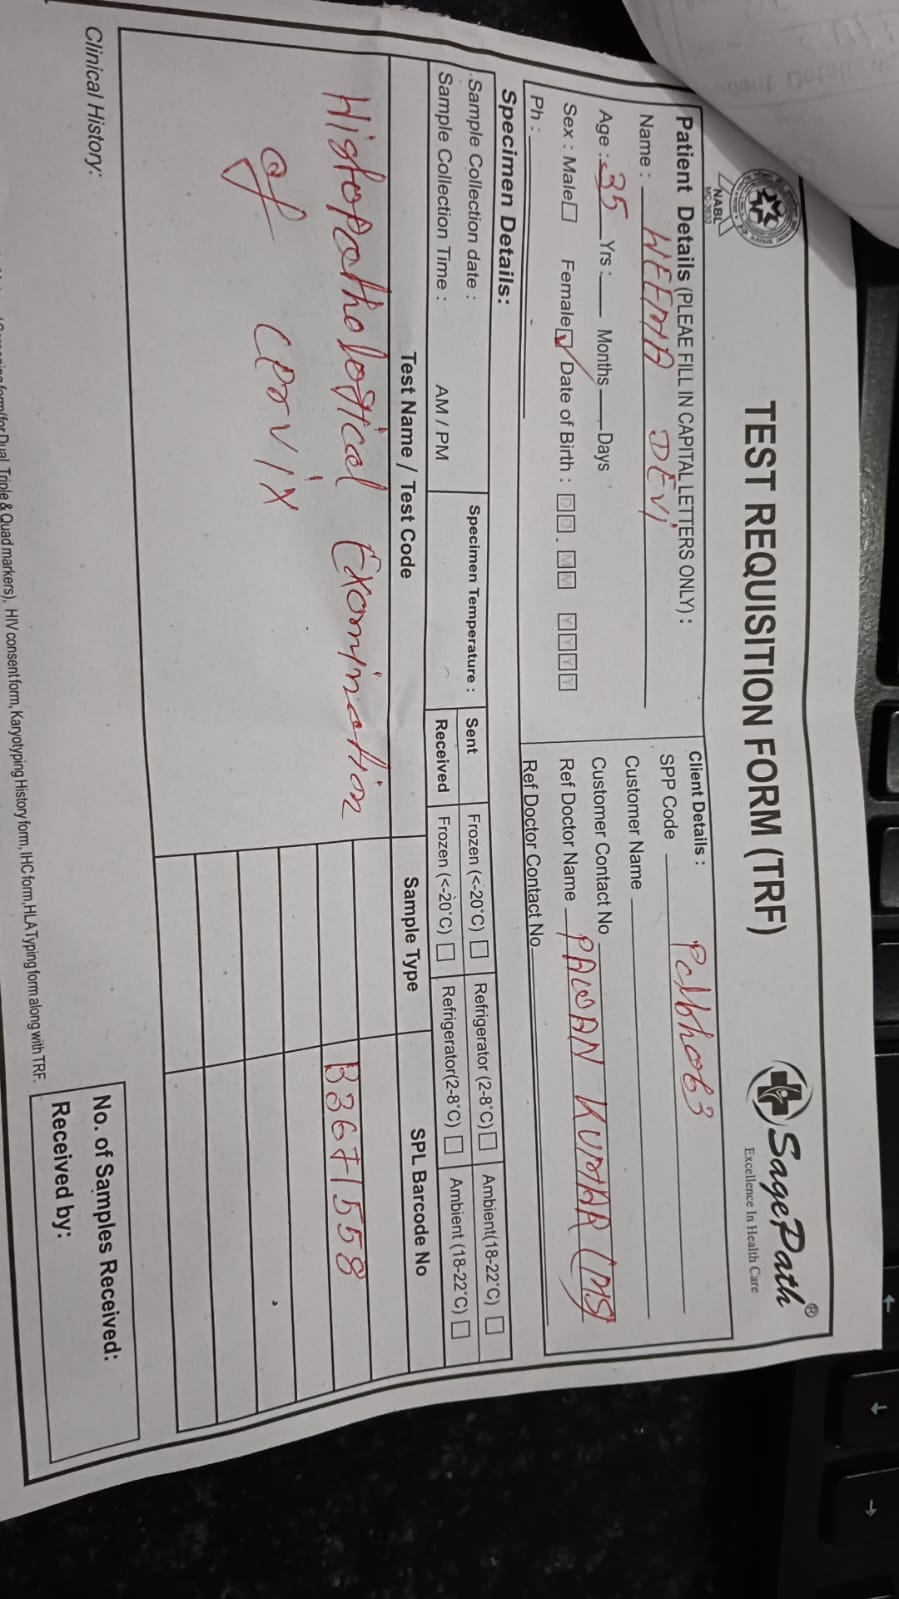 NABL
TEST REQUISITION FORM (TRF)
SagePath®
Excellence In Health Care
Patient Details (PLEAE FILL IN CAPITAL LETTERS ONLY) :
Name : HEEMA DEVI
Age : 35 Yrs : Months Days
Sex : Male Female ✓ Date of Birth : DD . MM YYYY
Ph :
Client Details :
SPP Code
Customer Name
Customer Contact No
Ref Doctor Name PAWAN KUMAR (MS)
Ref Doctor Contact No
Specimen Details:
Sample Collection date :
Sample Collection Time : AM / PM
Specimen Temperature :
Sent Frozen (<-20°C) Refrigerator (2-8°C) Ambient(18-22°C)
Received Frozen (<-20°C) Refrigerator(2-8°C) Ambient (18-22°C)
Test Name / Test Code Sample Type SPL Barcode No
Histopathological Examination B3671558
of cervix
Clinical History:
No. of Samples Received:
Received by:
form(for Dual, Triple & Quad markers), HIV consent form, Karyotyping History form, IHC form,HLA Typing form along with TRF.